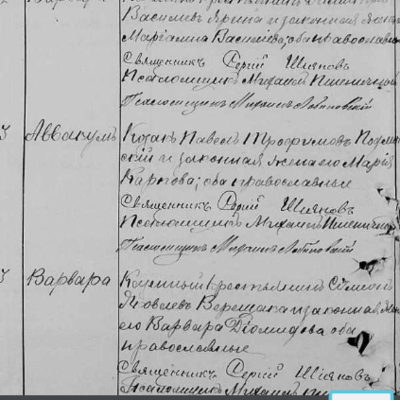 Василiевъ Ярина и законная жена
Марiанна Василiева, оба православн
Священникъ Сергiй Шияновъ
Псаломщикъ Михаилъ Пшеничн
Псаломщикъ Мартинъ
3 Аввакумъ Козакъ Павелъ Трофимовъ
скiй и законная жена его Марiя
Карпова; оба православные
Священникъ Сергiй Шияновъ
Псаломщикъ Михаилъ Пшеничн
Псаломщикъ Мартинъ
3 Варвара Казенный крестьянинъ Сѵмеонъ
Яковлевъ Верещака и законная жена
его Варвара Дiомидова оба
православные
Священникъ Сергiй Шияновъ
Псаломщикъ Михаилъ